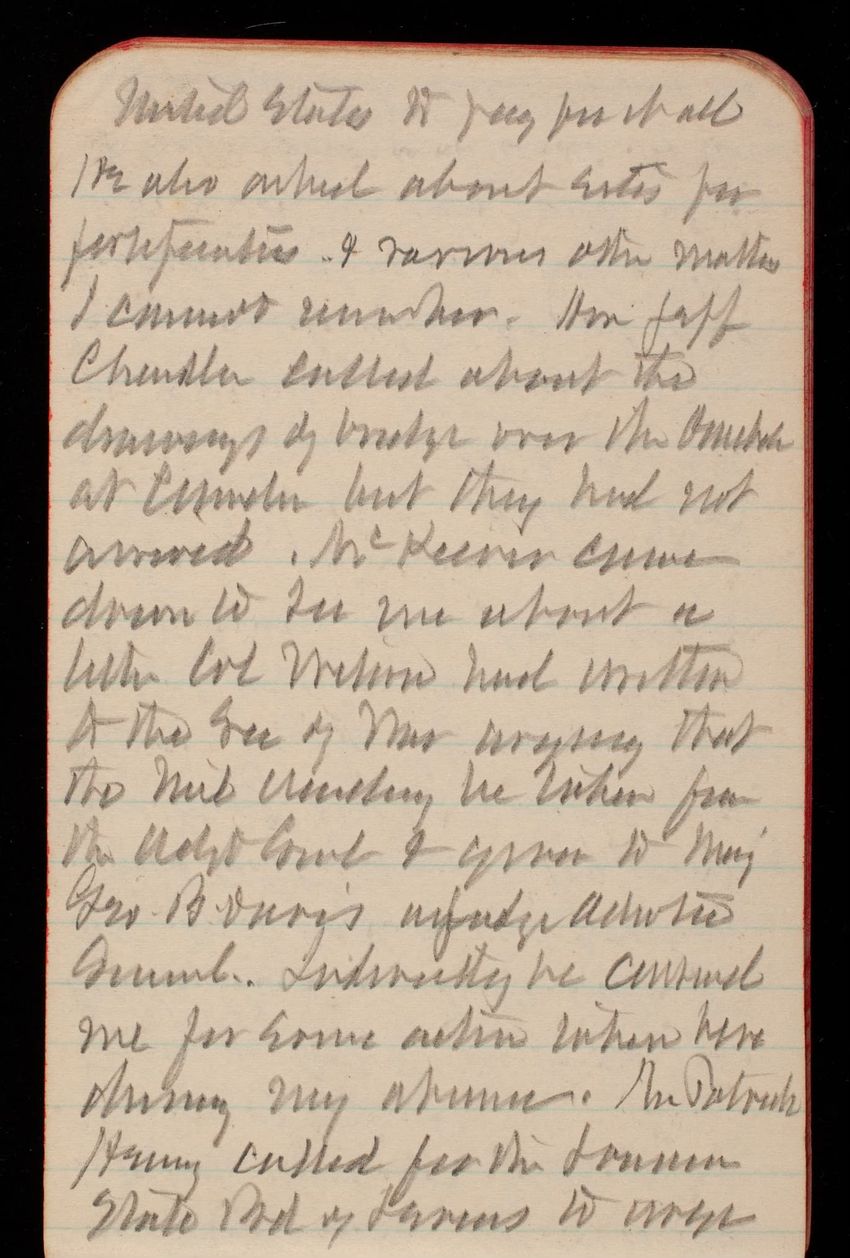 United States to pay for it all
He also asked about sites for
fortifications & various other matters
I cannot remember. Hon Jeff
Chandler called about the
drawings of bridge over the
at but they had not
arrived. McKeever came
down to see me about a
letter Col had written
to the Sec of War arguing that
the Mil Academy be taken from
the Adgt Genl & given to Maj
Geo B Davis a judge advocate
General. Indirectly he censured
me for some action taken here
during my absence. Mr Patrick
Henry called for the
State Bd of to urge